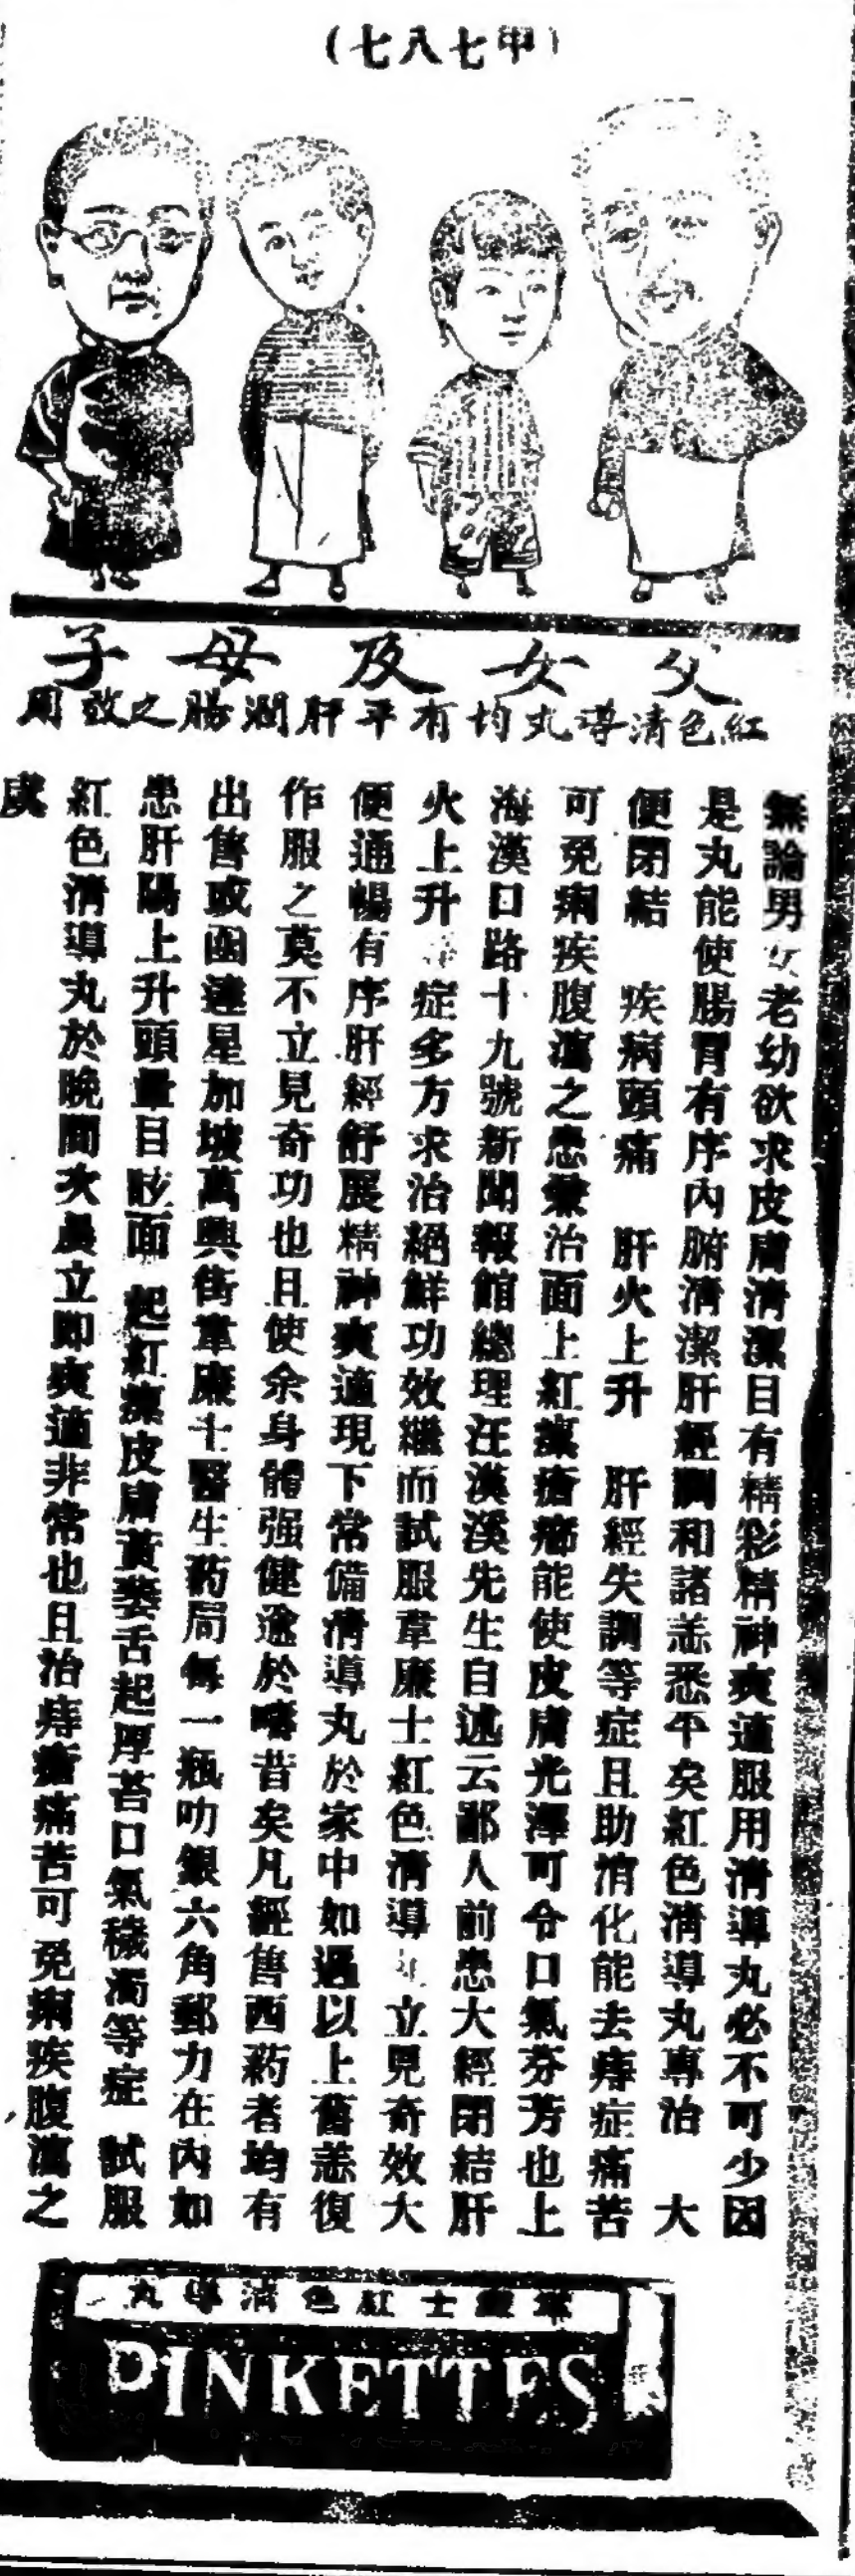 (七八七甲)
父女及母子
紅色清導丸均有平肝潤腸之效用
無論男女老幼欲求皮膚清潔目有精彩精神爽適服用清導丸必不可少因
是丸能使腸胃有序內腑清潔肝經調和諸恙悉平矣紅色清導丸專治 大
便閉結 疾病頭痛 肝火上升 肝經失調等症且助消化能去痔症痛苦
可免痢疾腹瀉之患兼治面上紅瘰瘡癤能使皮膚光澤可令口氣芬芳也上
海漢口路十九號新聞報館總理汪漢溪先生自述云鄙人前患大經閉結肝
火上升等症多方求治絕鮮功效繼而試服韋廉士紅色清導丸立見奇效大
便通暢有序肝經舒展精神爽適現下常備清導丸於家中如遇以上舊恙復
作服之莫不立見奇功也且使余身體强健逾於疇昔矣凡經售西葯者均有
出售或函達星加坡萬興街韋廉士醫生葯局每一瓶叻銀六角郵力在內如
患肝陽上升頭暈目眩面起紅瘰皮膚黃萎舌起厚苔口氣穢濁等症 試服
紅色清導丸於晚間次晨立即爽適非常也且治痔瘡痛苦可免痢疾腹瀉之
虞
韋廉士紅色清導丸
PINKETTES